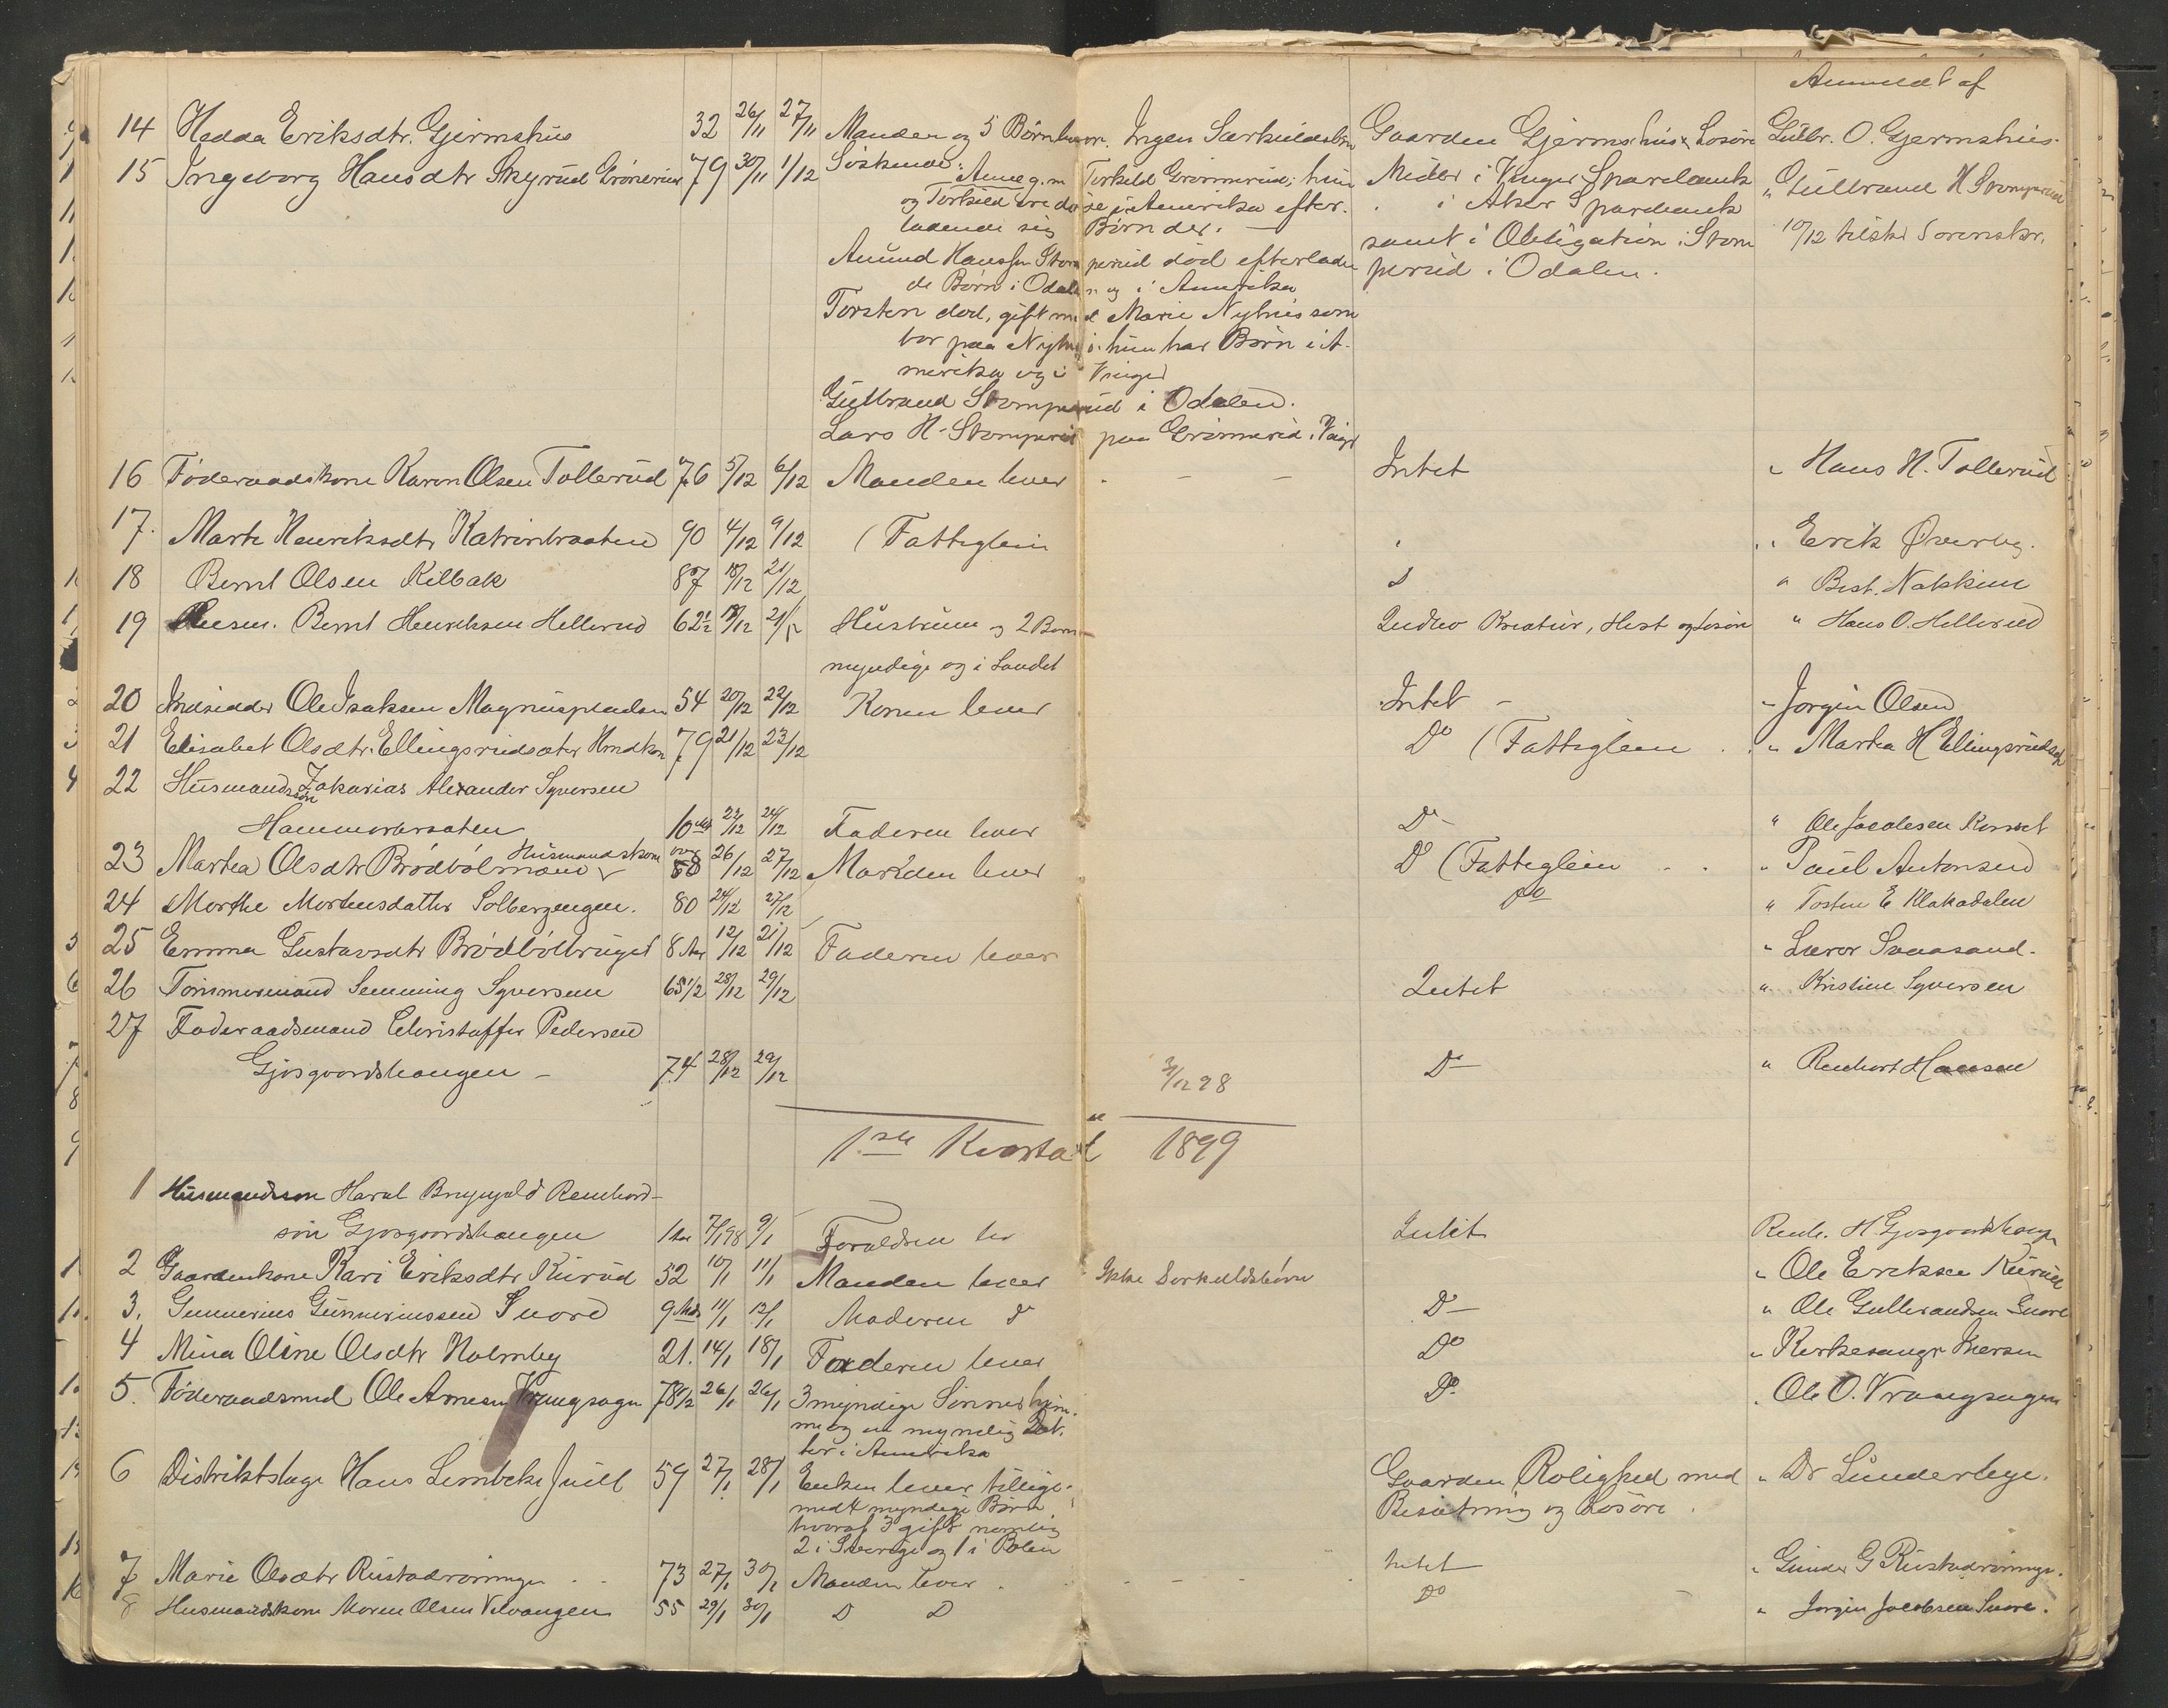 Anmeldt af
14 Hedda Eriksdtr. Gjermshus 32 26/11 27/11 Manden og 5 Børn lever. Ingen Særkuldsbørn Gaarden Gjermshus & Løsøre Gulbr. O. Gjermshus.
15 Ingeborg Hansdtr Skyrud Grønnerud 79 30/11 1/12 Søskende: Anne g. m Torkild Grønnerud; hun Midler i Vinger Sparebank " Gulbrand H Stomperud
og Torkild ere døde i Amerika efter- i Aker Sparebank
ladende sig Børn der. — samt i Obligation i Stom 10/12 tilskr Sorenskr.
Amund Hansen Stomperud død efterladen perud i Odalen.
de Børn i Odalen og i Amerika
Torsten død, gift med Marie Nyhus som
bor paa Nyhus; hun har Børn i A-
merika og i Vinger
Gulbrand Stomperud i Odalen.
Lars H. Stomperud paa Grønnerud i Vinger
16 Føderaadskone Karen Olsen Tollerud 76 5/12 6/12 Manden lever - - - Intet " Hans H. Tollerud
17. Marte Henriksdtr Katrinbraaten 90 4/12 9/12 (Fattiglem " " Erik Øverby.
18 Bernt Olsen Kilbak 87 18/12 21/12 " Best. Nakkim
19 Bernt Henriksen Hellerud 62½ 18/12 21/12 Hustruen og 2 Børn Indbo Kreatur, Hest og Løsøre " Hans O. Hellerud
myndige og i Landet
20 Inderst Ole Isaksen Magnuspladsen 54 20/12 22/12 Konen lever Intet - - Jørgen Olsen
21 Elisabet Olsdtr. Ellingsrudsæter 79 21/12 23/12 Do (Fattiglem . . " Martea H Ellingsrudsæt
22 Husmandssøn Zakarias Alexander Syversen
Hammerbraaten 10 22/12 24/12 Faderen lever Do " Ole Jacobsen
23 Martea Olsdtr Brødbølmoen Husmandskone over 88 26/12 27/12 Manden lever Do (Fattiglem . . " Paul Antonsen
24 Marthe Mortensdatter Solbergengen. 80 24/12 27/12 Do " Tosten E Klakadalen
25 Emma Gustavsdtr Brødbølbruget 8 Aar 12/12 21/12 Faderen lever " Lærer Svaasand.
26 Tømmermand Semming Syversen 65 1/2 28/12 29/12 Intet " Kristine Syversen
27 Føderaadsmand Christoffer Pedersen
Gjøsgaardshaugen - 74 28/12 29/12 31/12 98 Do " Renhart Hansen
1ste Kvartal 1899
1 Husmandssøn Haral Brynjulf Renhard-
søn Gjøsgaardshaugen 1 Aar 7/1 98 9/1 Forældren lev Intet Renh. H. Gjøsgaardshaug
2 Gaardmkone Kari Eriksdtr Kurud 52 10/1 11/1 Manden lever Ikke Særkuldsbørn " Ole Eriksen Kurud
3. Gunnerius Gunneriussen Snore 9 Mdr 11/1 12/1 Moderen do Do " Ole Gulbrandsen Snore
4 Mina Oline Olsdtr Holmby 21. 14/1 18/1 Faderen lever Do " Kirkesanger Iversen
5. Føderaadsmd Ole Arnesen Vrangsagen 78 1/2 26/1 26/1 3 myndige Sønner hjem- Do " Ole O. Vrangsagen
me og en myndig Dat.
ter i Amerika
6 Distriktslæge Hans Lembcke Juell 59 27/1 28/1 Enken lever tillige- Gaarden Rolighed med " Dr Sunderbye.
med 4 myndige Børn Besætning og Løsøre .
hvoraf 3 gift nemlig
2 i Sverige og 1 i Polen
7 Marie Olsdtr Rustadrønningen 73 27/1 30/1 Manden lever . - - - . Intet " Gunder G Rustadrønninge.
8 Husmandskone Maren Olsen Velvangen 55 29/1 30/1 D D Do " Jørgen Jacobsen Snore.